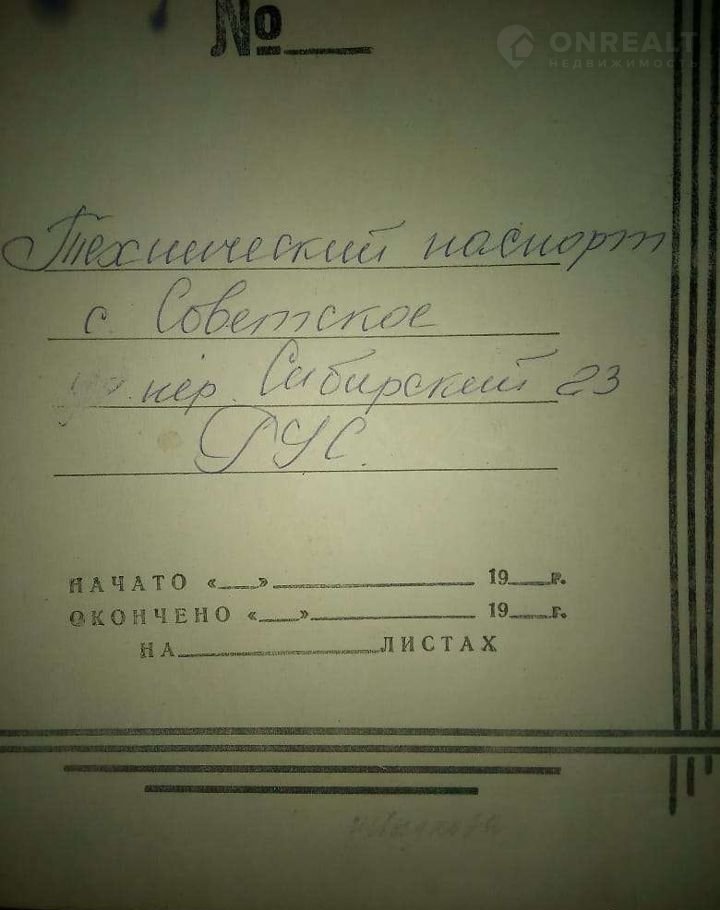 №
ONREALT
НЕДВИЖИМОСТЬ
Технический паспорт
с. Советское
пер. Сибирский 23
РУС.
НАЧАТО «___»_______________ 19___г.
ОКОНЧЕНО «___»_______________ 19___г.
НА_______________ЛИСТАХ